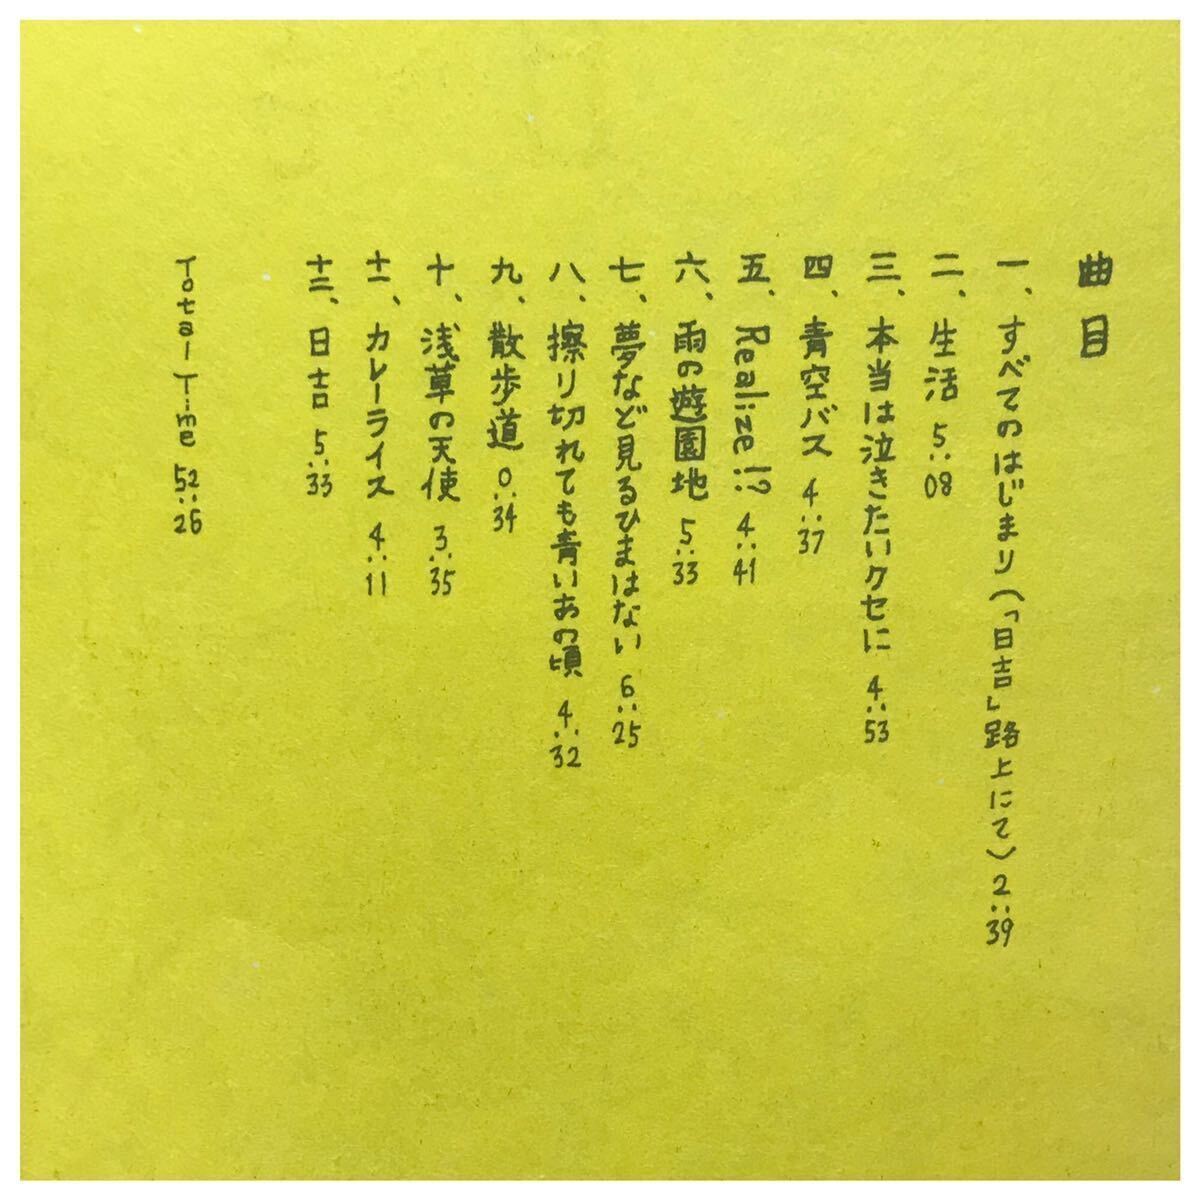 曲目
一、すべてのはじまり(「日吉」路上にて) 2:39
二、生活 5:08
三、本当は泣きたいクセに 4:53
四、青空バス 4:37
五、Realize!? 4:41
六、雨の遊園地 5:33
七、夢など見るひまはない 6:25
八、擦り切れても青いあの頃 4:32
九、散歩道 0:34
十、浅草の天使 3:35
十一、カレーライス 4:11
十二、日吉 5:33
Total Time 52:26